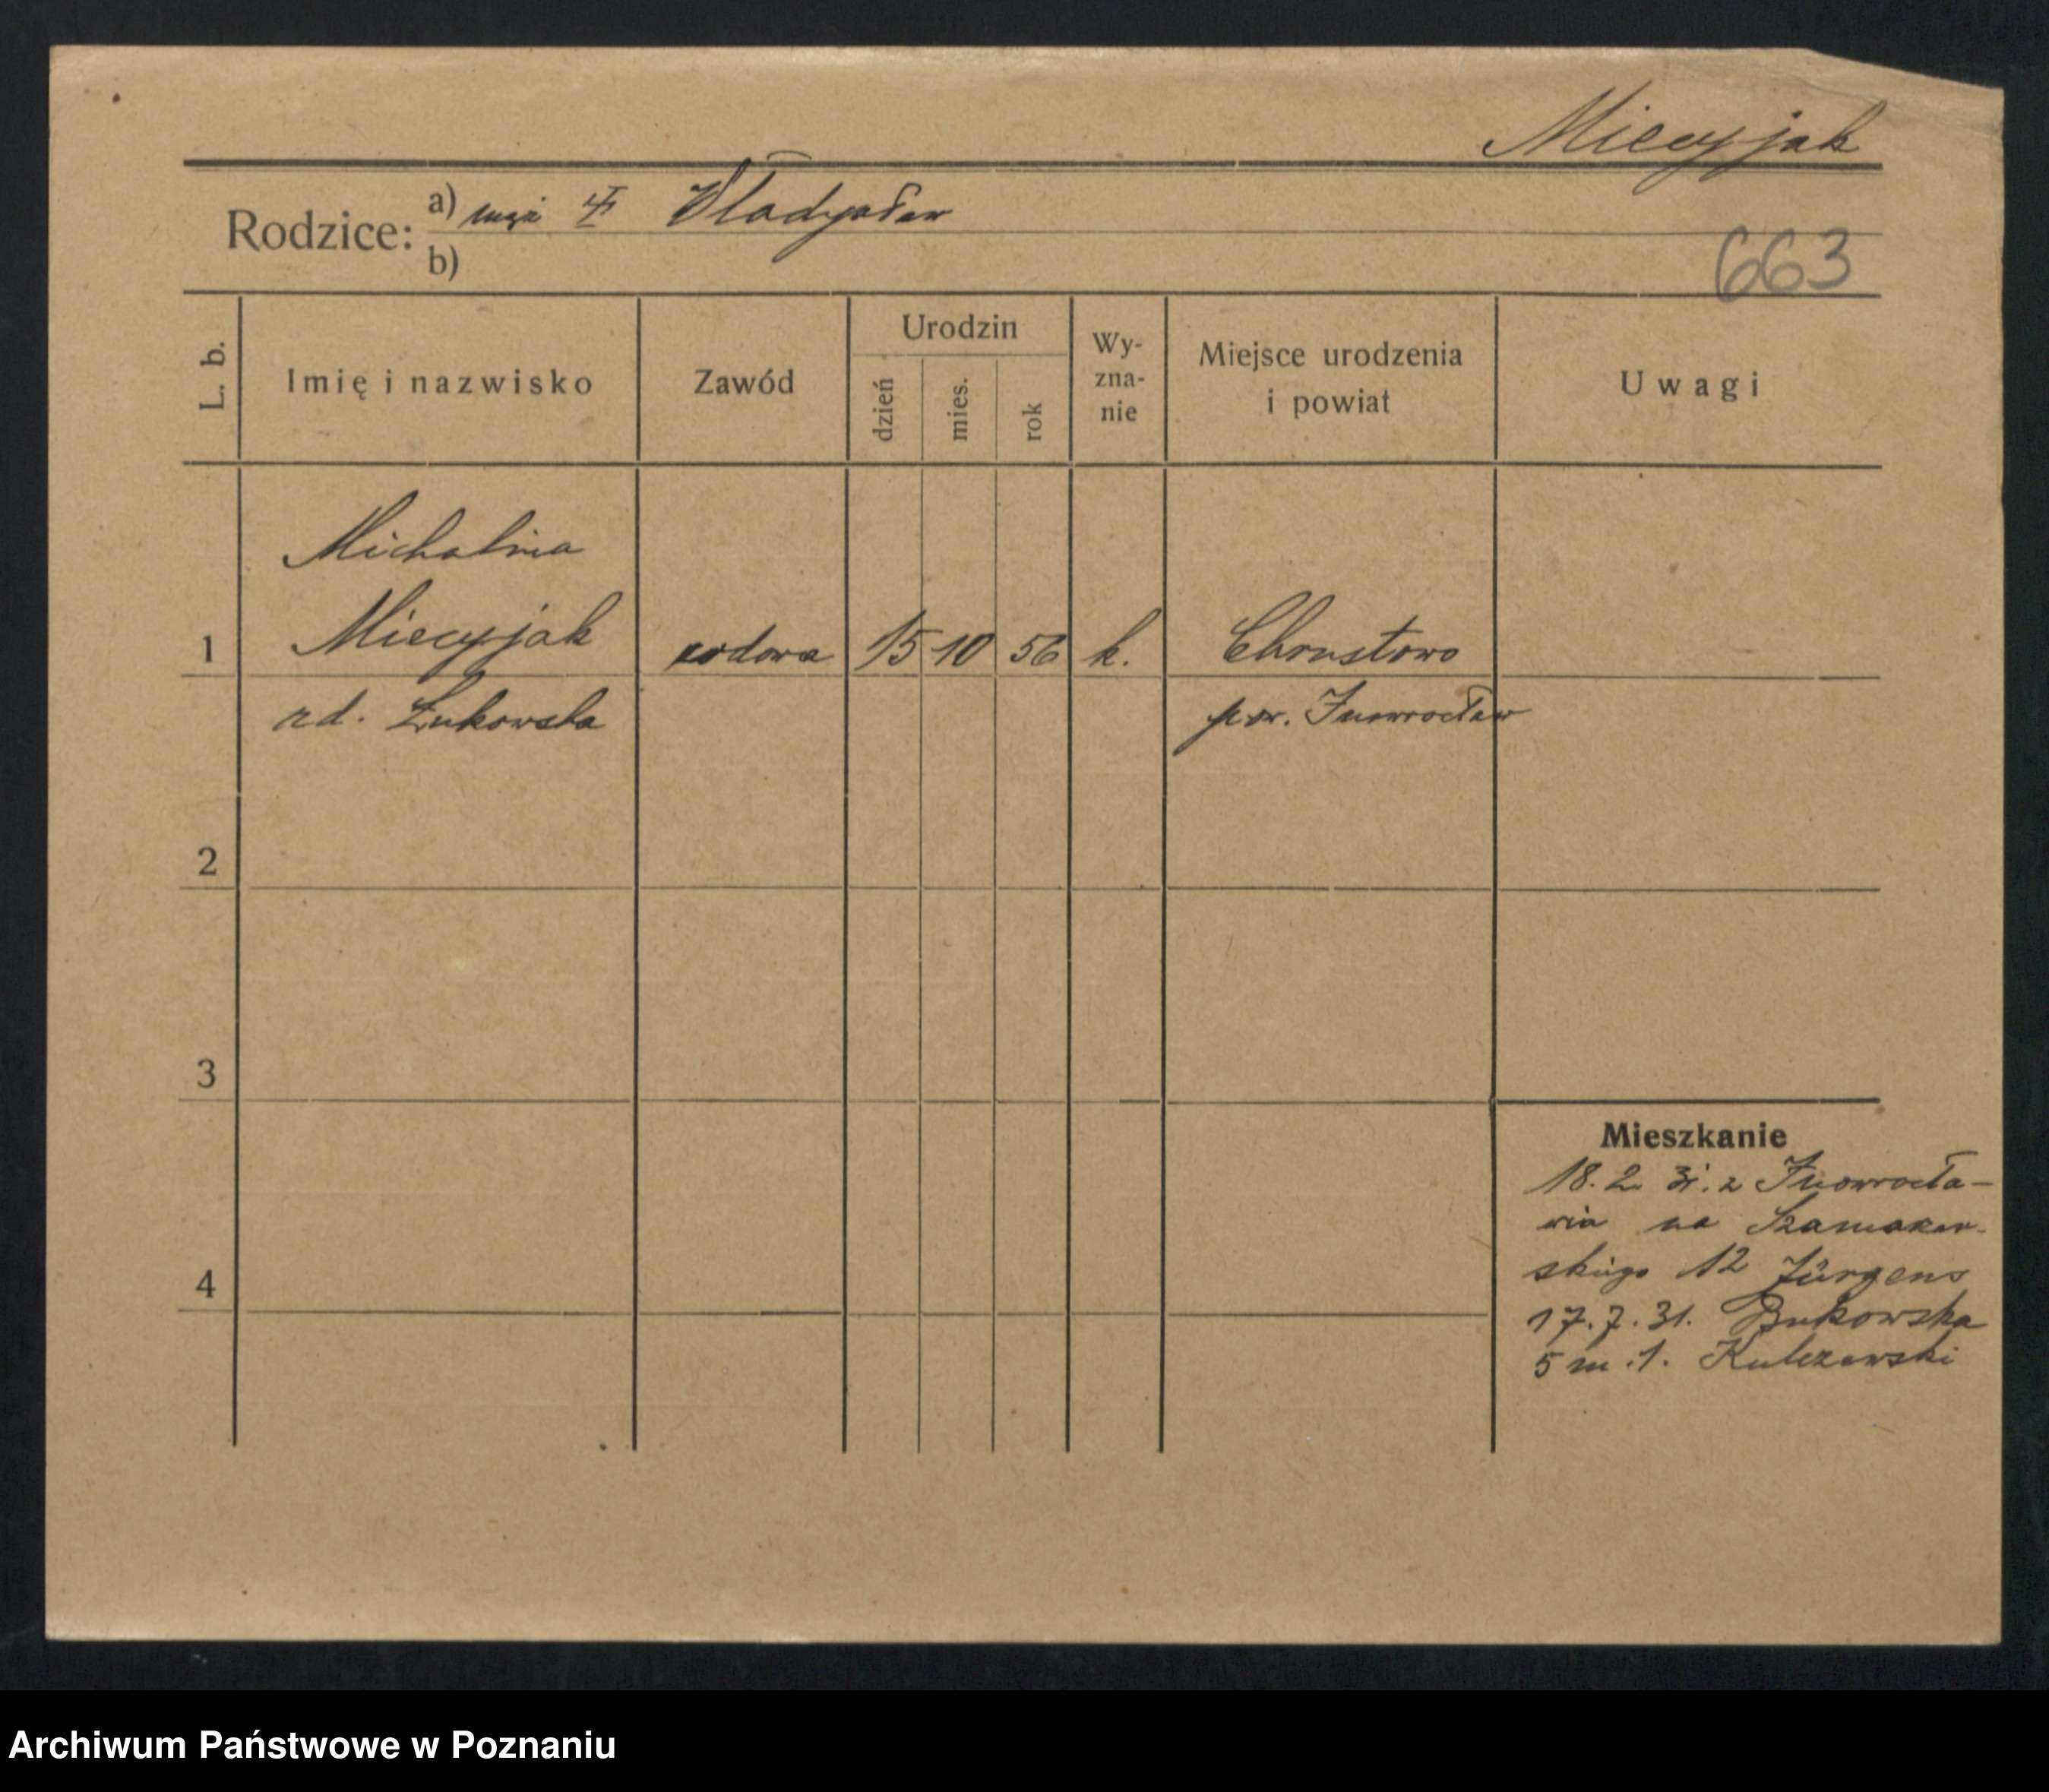 Mieczyjak
Rodzice: a) mąż Władysław
b)
663
L. b.
Imię i nazwisko
Zawód
Urodzin
dzień
mies.
rok
Wy-
zna-
nie
Miejsce urodzenia
i powiat
Uwagi
Michalina
1 Mieczyjak wdowa 15 10 56 k. Chrustowo
rd. Łukowska pow. Inowrocław
2
3
4
Mieszkanie
18.2. 31. z Inowrocła-
wia na
skiego 12 Jürgens
17.7.31. Bukowska
5 m. 1. Kulczewski
Archiwum Państwowe w Poznaniu